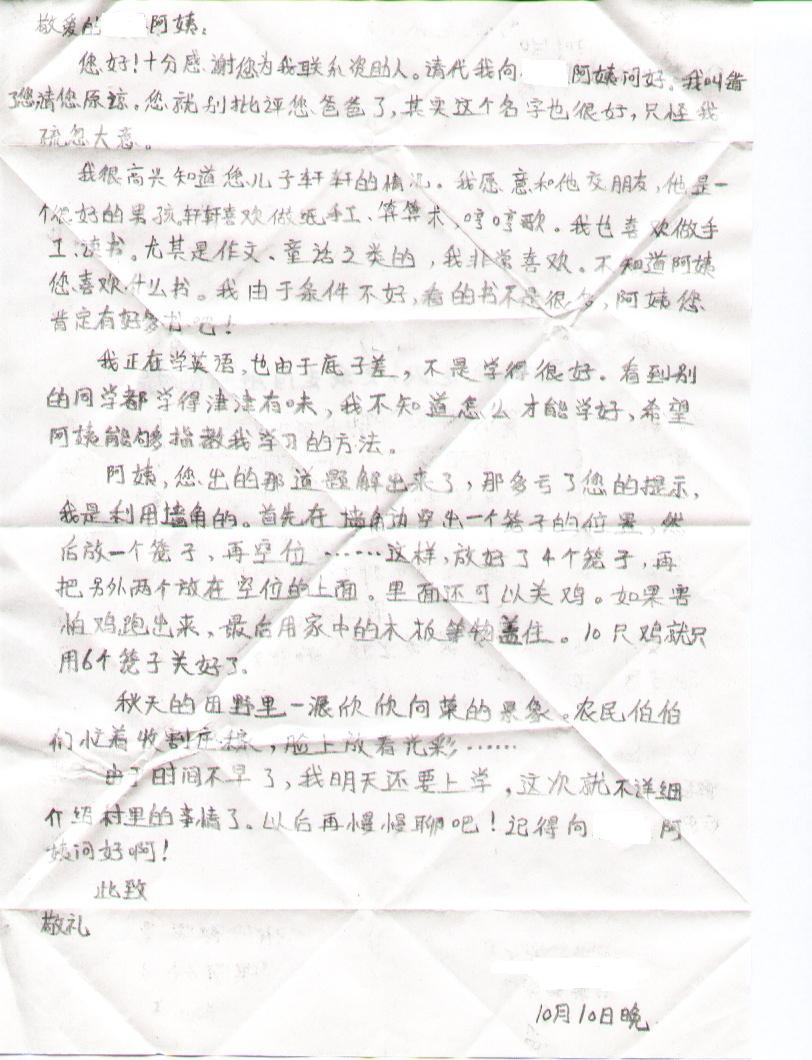 敬爱的 阿姨：
您好！十分感谢您为我联系资助人。请代我向 阿姨问好。我叫错
了您请您原谅。您就别批评您爸爸了，其实这个名字也很好，只怪我
疏忽大意。
我很高兴知道您儿子轩轩的情况。我愿意和他交朋友，他是一
个很好的男孩。轩轩喜欢做纸手工、算算术，哼哼歌。我也喜欢做手
工、读书。尤其是作文、童话之类的，我非常喜欢。不知道阿姨
您喜欢什么书。我由于条件不好，看的书不是很多，阿姨您
肯定有好多书吧！
我正在学英语，也由于底子差，不是学得很好。看到别
的同学都学得津津有味，我不知道怎么才能学好，希望
阿姨能够指教我学习的方法。
阿姨，您出的那道题解出来了，那多亏了您的提示，
我是利用墙角的。首先在墙角边空出一个笼子的位置，然
后放一个笼子，再空位……这样，放好了4个笼子，再
把另外两个放在空位的上面。里面还可以关鸡。如果害
怕鸡跑出来，最后用家中的木板等物盖住。10只鸡就只
用6个笼子关好了。
秋天的田野里一派欣欣向荣的景象。农民伯伯
们忙着收割庄稼，脸上放着光彩……
由于时间不早了，我明天还要上学，这次就不详细
介绍村里的事情了。以后再慢慢聊吧！记得向 阿
姨问好啊！
此致
敬礼
10月10日晚